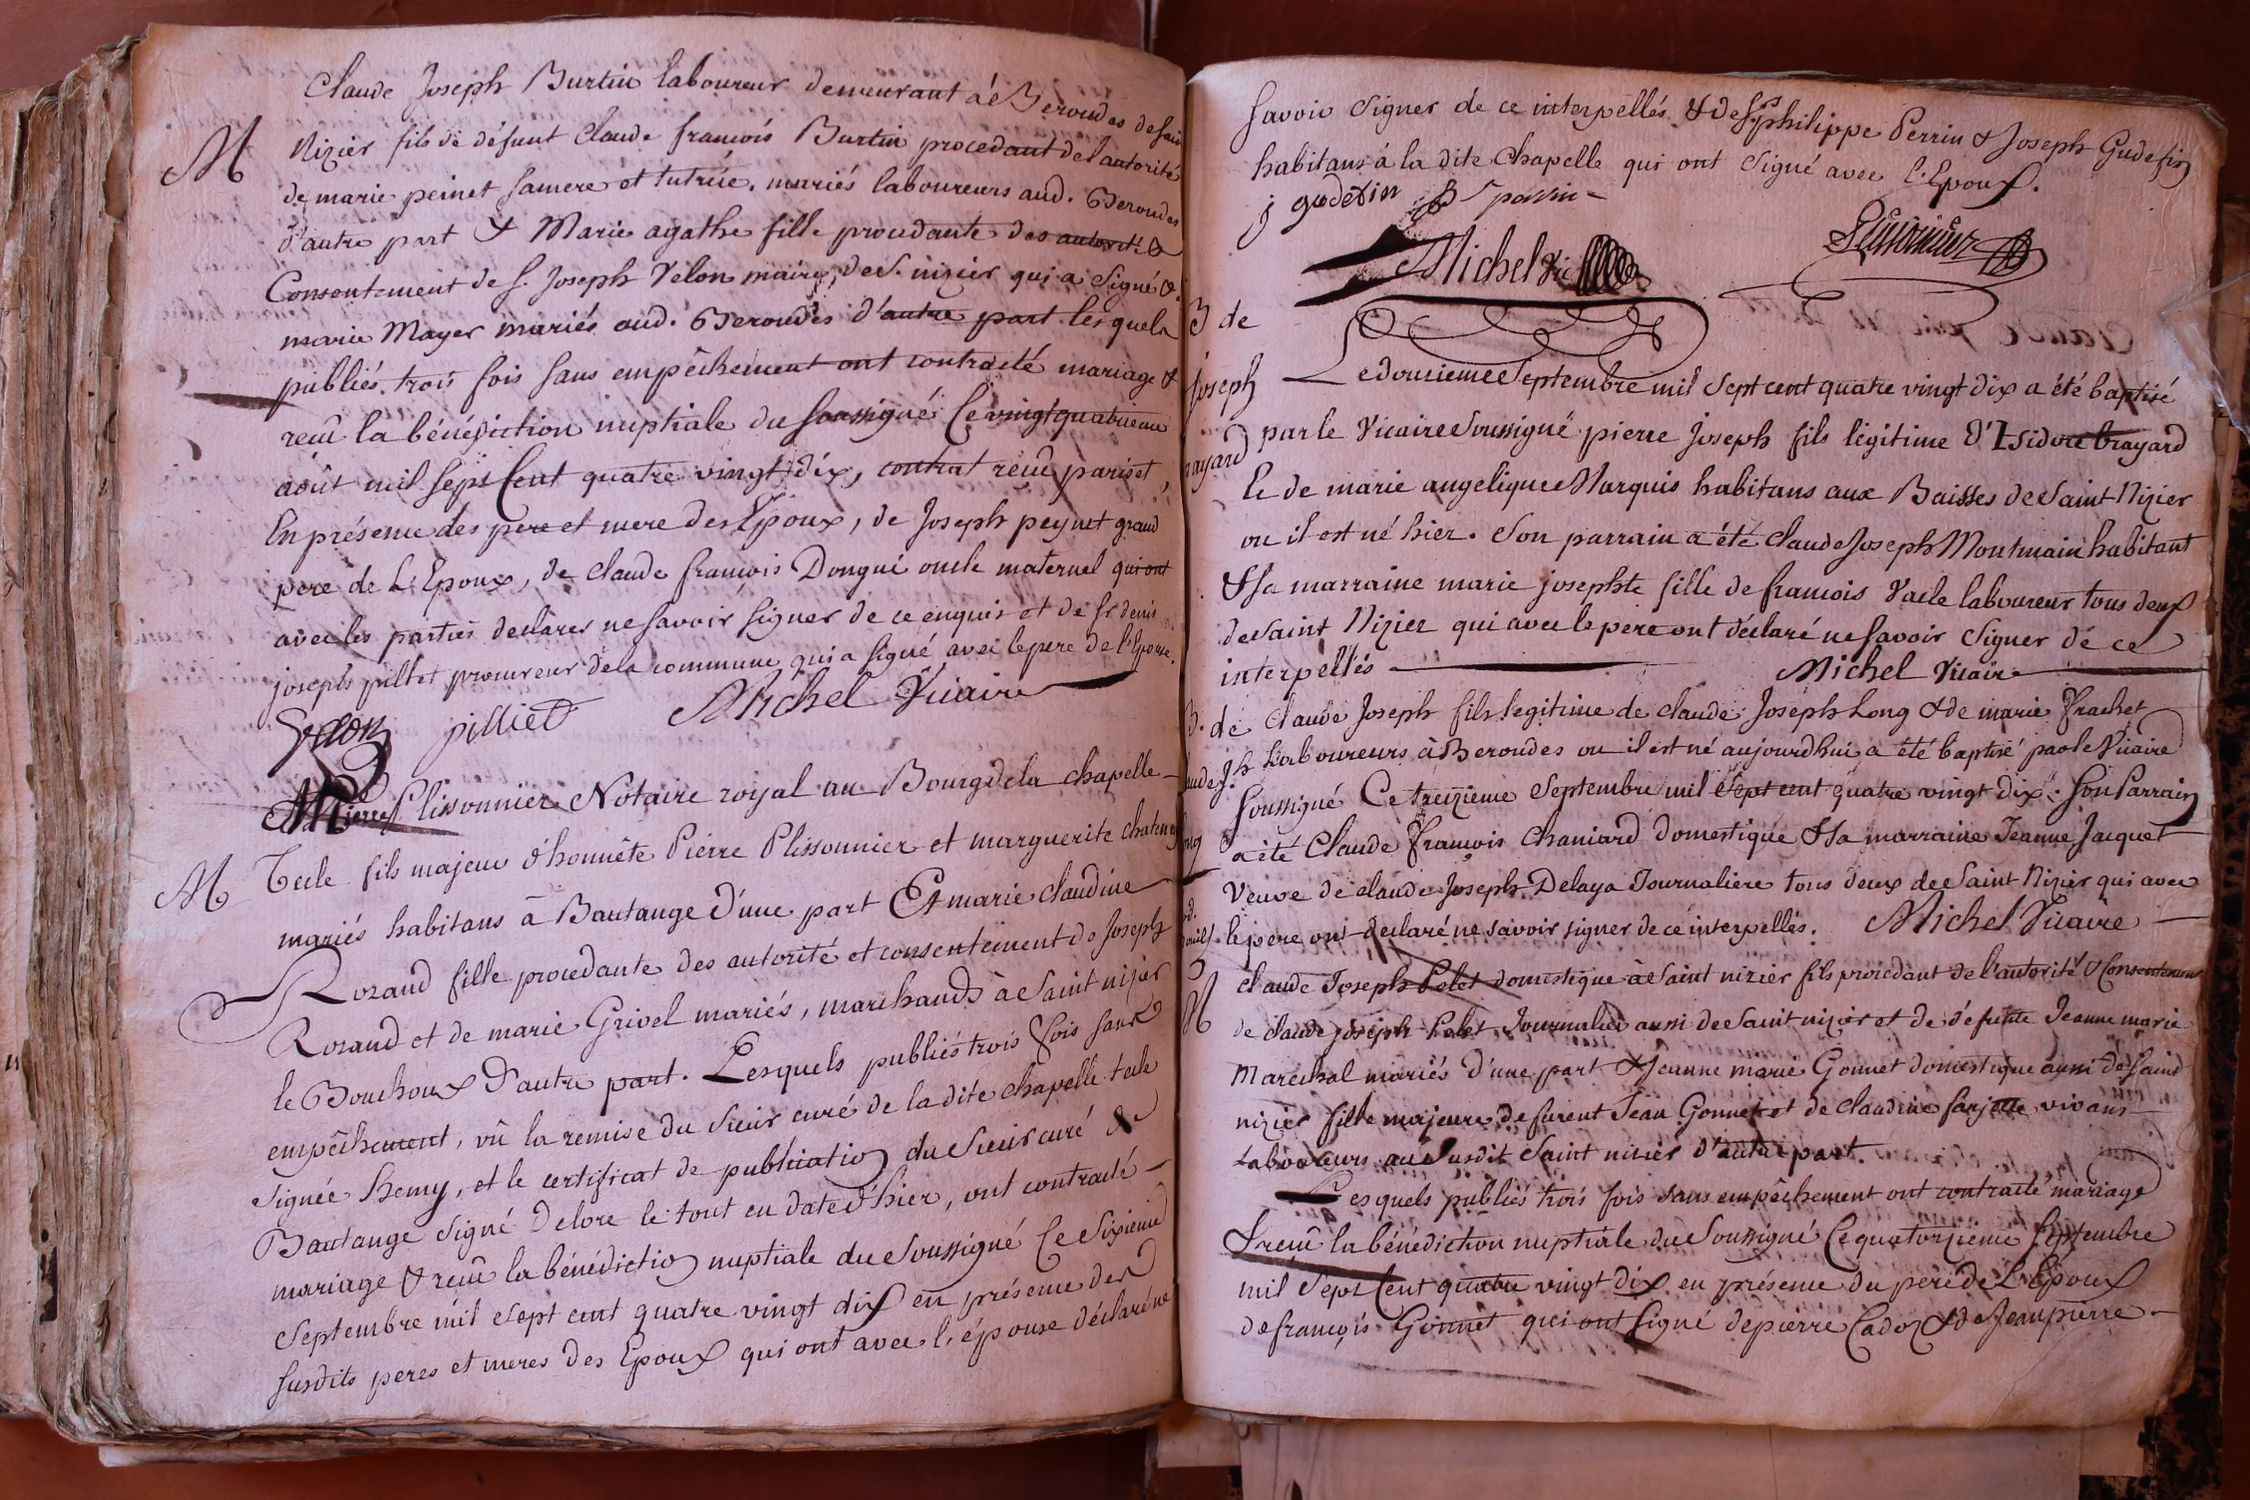 Claude Joseph Burtin laboureur demeurant à Beroudes de sain
M
Nizier fils de défunt Claude françois Burtin procedant del'autorité
de marie peinet sa mere et tutrice, mariés laboureurs aud. Beroudes
d'autre part & Marie agathe fille procedante des autorité &
Consentement de s. Joseph Velon maire de s. nizier qui a signé &
marie Mayer mariés aud. Beroudes d'autre part lesquels
publiés trois fois sans empêchement ont contracté mariage &
recu la bénédiction nuptiale du soussigné Ce vingtquatrieme
août mil sept Cent quatre vingt dix, contrat recu pariset,
En présence des pere et mere des Epoux, de Joseph peynet grand
pere de L'Epoux, de claude françois Dongué oncle maternel qui ont
avec les parties declarer ne savoir signer de ce enquis et de sr denis
joseph pilliet procureur dela commune qui a signé avec le pere de l'Epouse.
Velon pilliet Michel Vicaire
Pierre Plissonnier Notaire royal au Bourg de la chapelle
M
Tecle fils majeur d'honnête Pierre Plissonnier et marguerite chatenay
mariés habitans à Bautange d'une part Et marie claudine
Rozand fille procedante des autorité et consentement de Joseph
Rozand et de marie Grivel mariés, marchands à Saint nizier
le Bouchoux d'autre part. Lesquels publiés trois fois sans
empêchement, vû la remise du Sieur curé de la dite chapelle tecle
signée hemy, et le certificat de publication du Sieur curé de
Bautange signé Delore le tout en date d'hier, ont contracté
mariage & recu la bénédiction nuptiale du Soussigné Ce Sixieme
Septembre mil sept cent quatre vingt dix en présence des
susdits peres et meres des Epoux qui ont avec l'épouse déclaré ne
savoir signer de ce interpellés & de srs philippe Perrin & Joseph Gudefin
habitans à la dite chapelle qui ont signé avec l'Epoux.
j gudefin
Michel Vic Plissonnier
B de
Joseph
rayard
Le douzieme Septembre mil sept cent quatre vingt dix a été baptisé
par le Vicaire Soussigné pierre Joseph fils légitime d'Isidore brayard
Et de marie angelique Marquis habitans aux Baisses de Saint Nizier
ou il est né hier. Son parrain a été claude Joseph Montmain habitant
& sa marraine marie josephte fille de françois Vacle laboureur tous deux
de Saint Nizier qui avec le pere ont déclaré ne savoir signer de ce
interpellés Michel Vicaire
B. de
aude Jh
ong
Claude Joseph fils legitime de claude Joseph Long & de marie Frachet
Laboureurs à Beroudes ou il est né aujourdhui a été baptisé par le Vicaire
Soussigné Ce treizieme Septembre mil Sept cent quatre vingt dix. Son Parrain
a été Claude François Chaniard domestique & sa marraine Jeanne Jacquet
Veuve de claude Joseph Delaya Journaliere tous deux de Saint Nizier qui avec
le pere ont declaré ne savoir signer de ce interpellés. Michel Vicaire
M
claude Joseph Pelet domestique à Saint nizier fils procedant de l'autorité & Consentement
de claude joseph Pelet Journalier aussi de Saint nizier et de défunte Jeanne marie
Maréchal mariés d'une part & Jeanne marie Gonnet domestique aussi de Saint
nizier fille majeure de furent Jean Gonnet et de claudine farjette vivans
Laboureurs au Susdit Saint nizier d'autre part.
Lesquels publiés trois fois sans empêchement ont contracté mariage
& recu la bénédiction nuptiale du Soussigné Ce quatorzieme Septembre
mil Sept Cent quatre vingt dix en présence du pere de L'Epoux
de françois Gonnet qui ont signé de pierre Cadoz & de Jean pierre